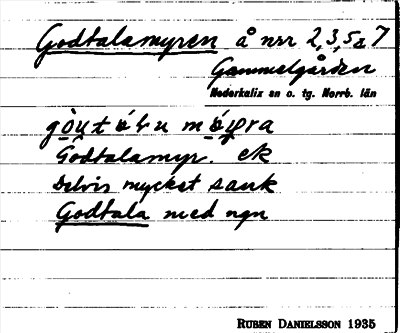 Godtalamyren å nrr 2,3,5a 7
Gammelgården
Nederkalix sn o. tg. Norrb. län
Godtalamyr. ek
Delvis mycket sank
Godtala med ngn
RUBEN DANIELSSON 1935